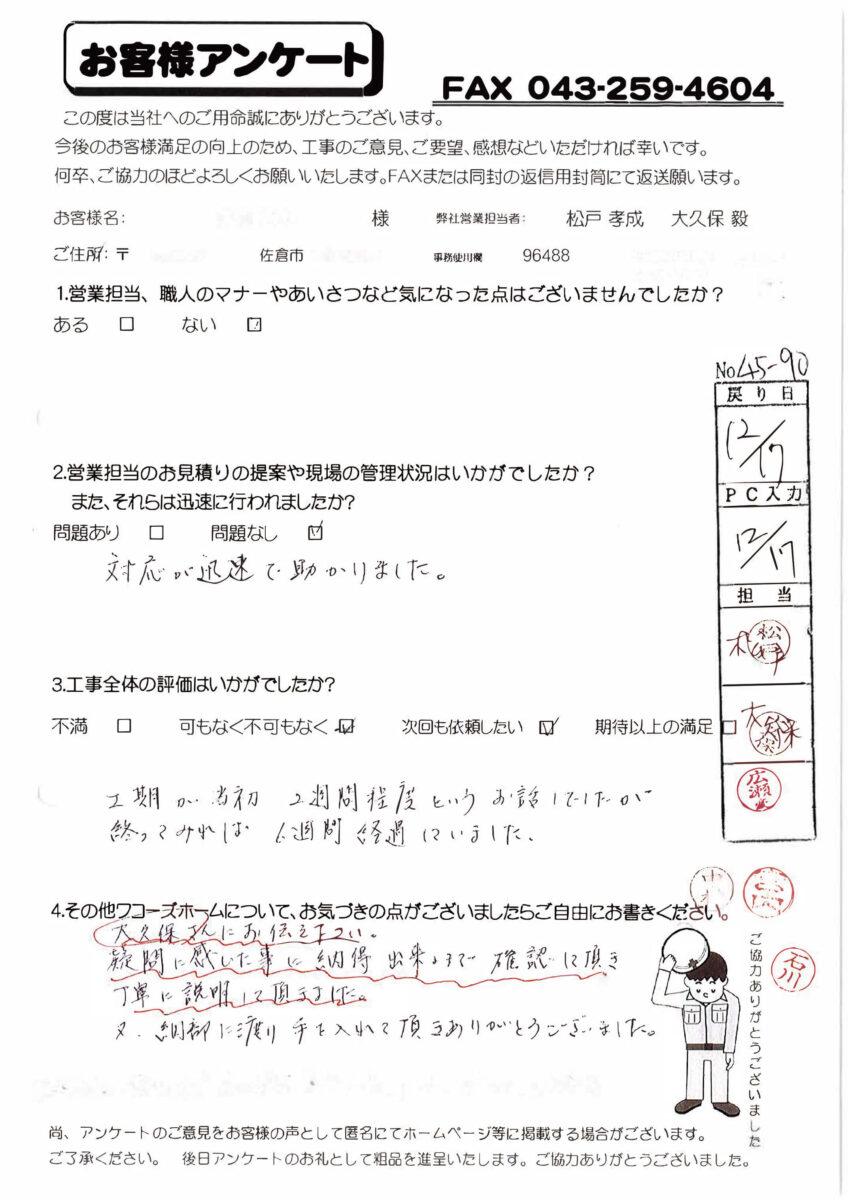 お客様アンケート
FAX 043-259-4604
この度は当社へのご用命誠にありがとうございます。
今後のお客様満足の向上のため、工事のご意見、ご要望、感想などいただければ幸いです。
何卒、ご協力のほどよろしくお願いいたします。FAXまたは同封の返信用封筒にて返送願います。
お客様名: 様 弊社営業担当者: 松戸 孝成 大久保 毅
ご住所: 〒 佐倉市 事務使用欄 96488
1.営業担当、職人のマナーやあいさつなど気になった点はございませんでしたか?
ある □ ない ☑
No 45-90
戻り日
12/17
PC入力
12/17
担当
広瀬
2.営業担当のお見積りの提案や現場の管理状況はいかがでしたか?
また、それらは迅速に行われましたか?
問題あり □ 問題なし ☑
対応が迅速で助かりました。
3.工事全体の評価はいかがでしたか?
不満 □ 可もなく不可もなく ☑ 次回も依頼したい ☑ 期待以上の満足 □
工期が当初 2週間程度というお話でしたが
終ってみれば 6週間 経過していました。
4.その他ワコーズホームについて、お気づきの点がございましたらご自由にお書きください。
大久保さんにお伝え下さい。
疑問に感じた事に納得出来るまで 確認して頂き
丁寧に説明して頂きました。
又、細部に渡り手を入れて頂きありがとうございました。
石川
ご協力ありがとうございました
尚、アンケートのご意見をお客様の声として匿名にてホームページ等に掲載する場合がございます。
ご了承ください。 後日アンケートのお礼として粗品を進呈いたします。ご協力ありがとうございました。